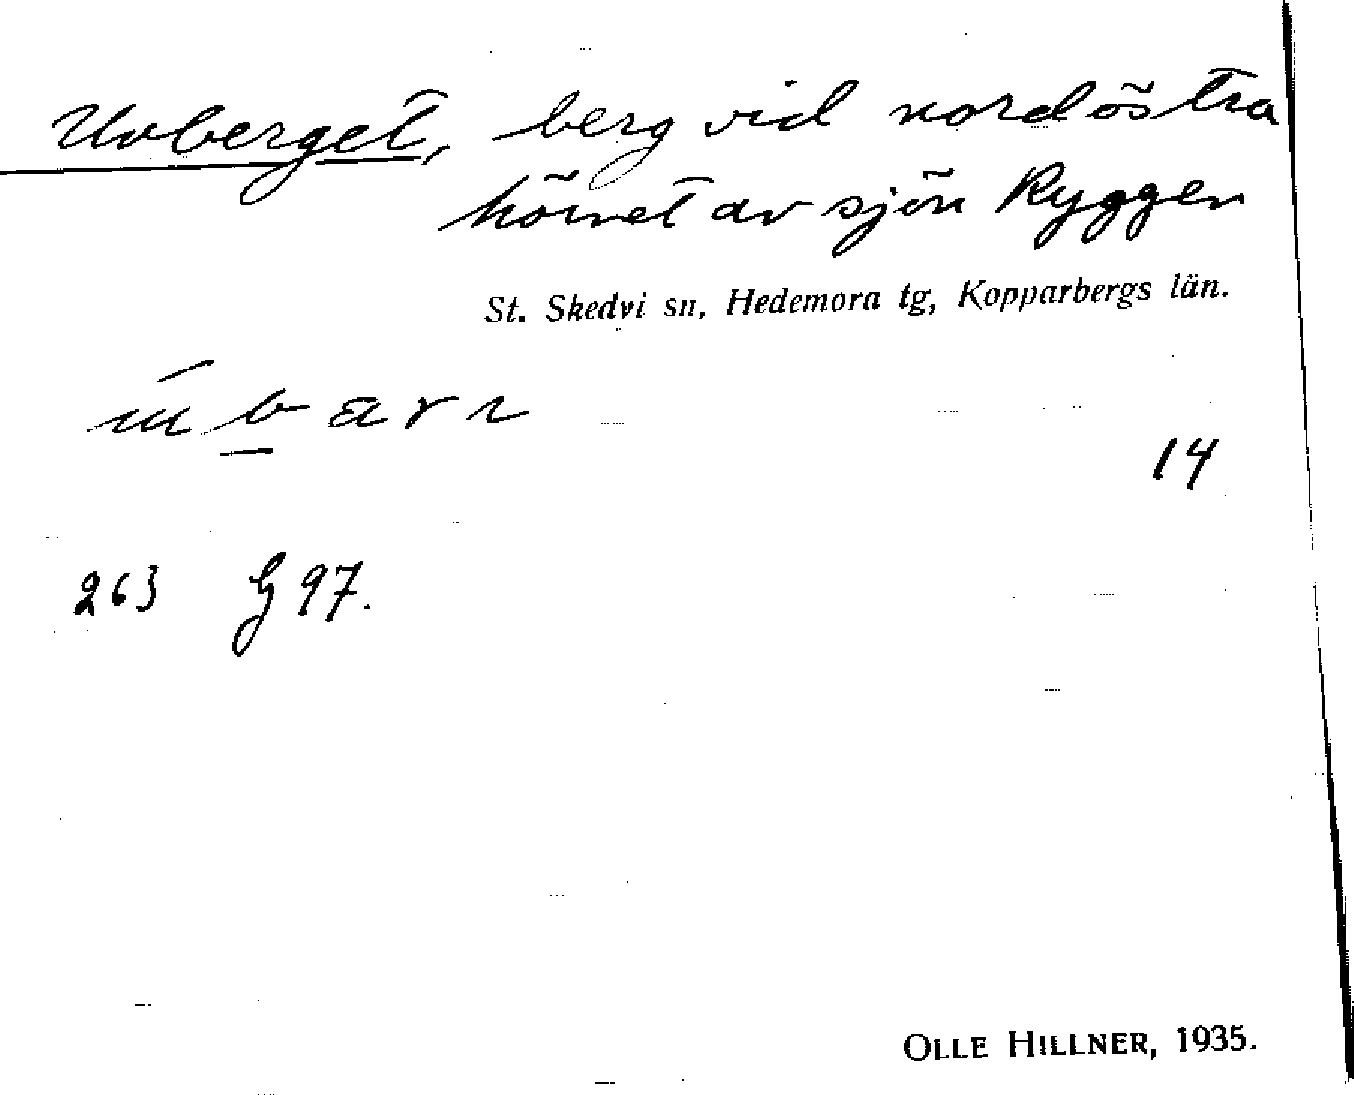 Uvberget, berg vid nordöstra
hörnet av sjön Ryggen
St. Skedvi sn, Hedemora tg, Kopparbergs län.
14
263 G 97.
OLLE HILLNER, 1935.